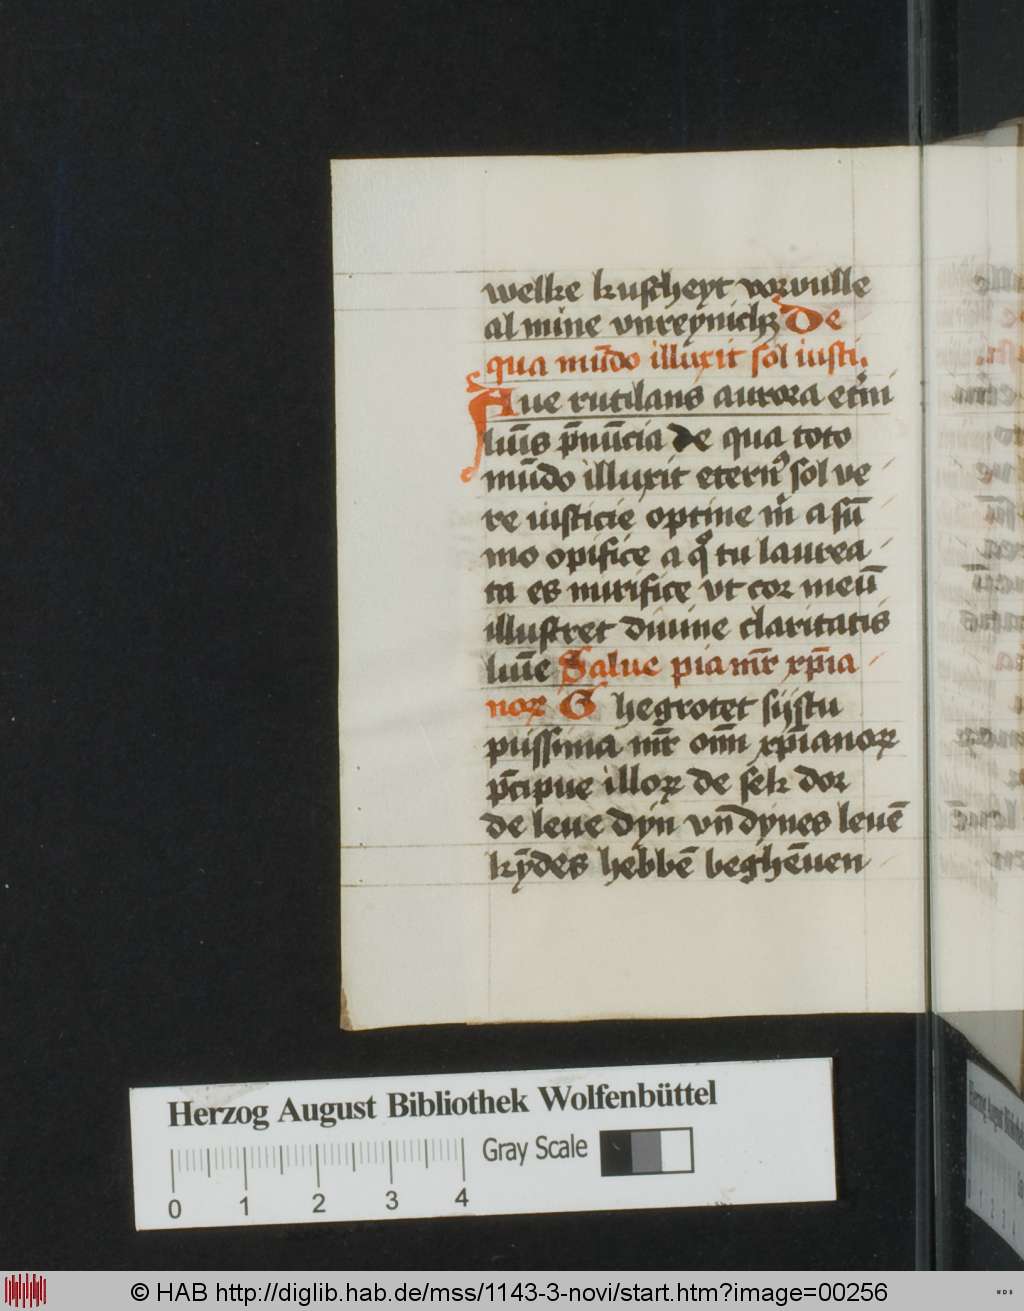 welke kuscheyt vorvulle
al mine vnreynicħ De
qua mūdo illuxit sol iusti.
Aue rutilans aurora et̉ni
luīs p̄nūcia de qua toto
mūdo illuxit etern᷒ sol ve
re iusticie optine m̉ a sūm
mo opifice a qͦ tu laurea
ta es mirifice vt cor meū
illustret diuine claritatis
luīe Salue pia mr̄ xp̄ia
noꝝ G hegrotet sijstu
piissima mr̄ om̄ xp̄ianoꝝ
p̄cipue illoꝝ de sek dor
de leue dyn vn̄ dynes leuē
kȳdes hebbē beghēuen
Herzog August Bibliothek Wolfenbüttel
Gray Scale
0 1 2 3 4
© HAB http://diglib.hab.de/mss/1143-3-novi/start.htm?image=00256